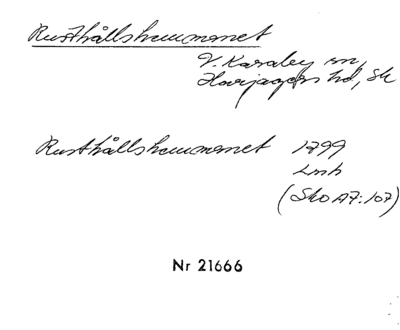 Rusthållshemmanet
V. Karaby sn,
Harjagers hd, Sk
Rusthållshemmanet 1799
Lmh
(Sko A7:107)
Nr 21666